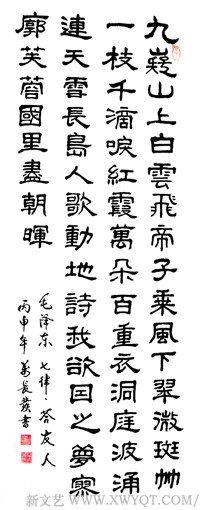 九嶷山上白雲飛帝子乘風下翠微斑竹
一枝千滴淚紅霞萬朵百重衣洞庭波涌
連天雪長島人歌動地詩我欲因之夢寥
廓芙蓉國里盡朝暉
毛泽东 七律·答友人
丙申年 長發書
新文艺 / WWW.XWYQT.COM/